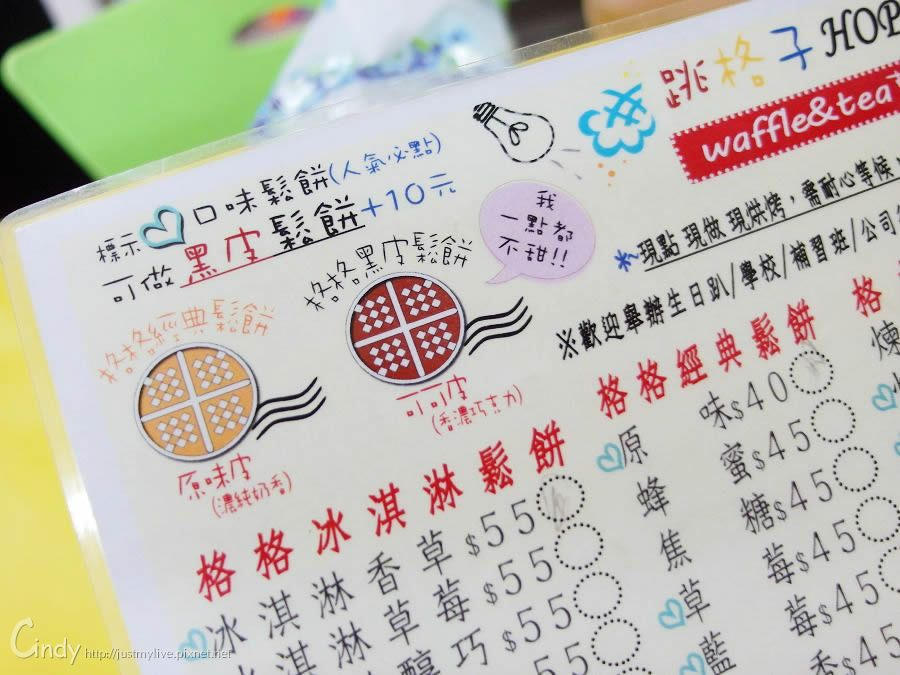 跳格子HOP
waffle&tea
標示♡口味鬆餅(人氣必點)
可做黑皮鬆餅+10元
我
一點都
不甜!!
*現點 現做 現烘烤，需耐心等候，
※歡迎舉辦生日趴/學校/補習班/公司
格格經典鬆餅
原味皮
(濃純奶香)
格格黑皮鬆餅
可可皮
(香濃巧克力)
格格冰淇淋鬆餅
冰淇淋香草$55
冰淇淋草莓$55
醇巧$55
55
格格經典鬆餅
原味$40
蜂蜜$45
焦糖$45
草莓$45
藍莓$45
香$45
格
煉
Cindy http://justmylive.pixnet.net